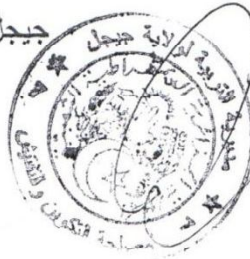 جيجل
مديرية التربية لولاية جيجل
مصلحة التكوين و التفتيش